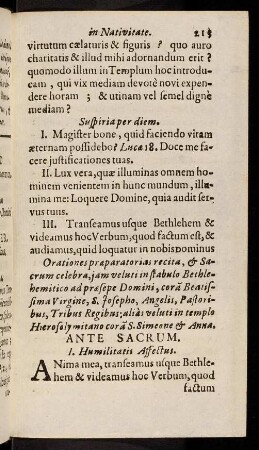 in Nativitate. 215
virtutum cælaturis & figuris ? quo auro
charitatis & illud mihi adornandum erit ?
quomodo illum in Templum hoc introdu-
cam , qui vix mediam devotè novi expen-
dere horam ; & utinam vel semel dignè
mediam ?
Suspiria per diem.
I. Magister bone , quid faciendo vitam
æternam possidebo? Luca 18. Doce me fa-
cere justificationes tuas.
II. Lux vera, quæ illuminas omnem ho-
minem venientem in hunc mundum, illu-
mina me: Loquere Domine, quia audit ser-
vus tuus.
III. Transeamus usque Bethlehem &
videamus hoc Verbum, quod factum est, &
audiamus, quid loquatur in nobis Dominus
Orationes præparatorias recita, & Sa-
crum celebra, jam veluti in stabulo Bethle-
hemitico ad præsepe Domini, corã Beatis-
sima Virgine, S. Josepho, Angelis, Pastori-
bus, Tribus Regibus; aliàs veluti in templo
Hierosolymitano corã S. Simeone & Anna.
ANTE SACRUM.
I. Humilitatis Affectus.
ANima mea, transeamus usque Bethle-
hem & videamus hoc Verbum, quod
factum